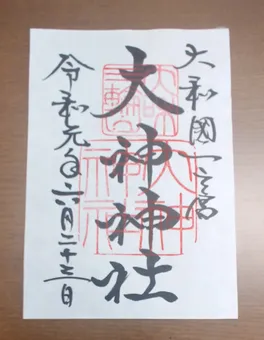 大和國一之宮
大神神社
令和元年六月二十三日